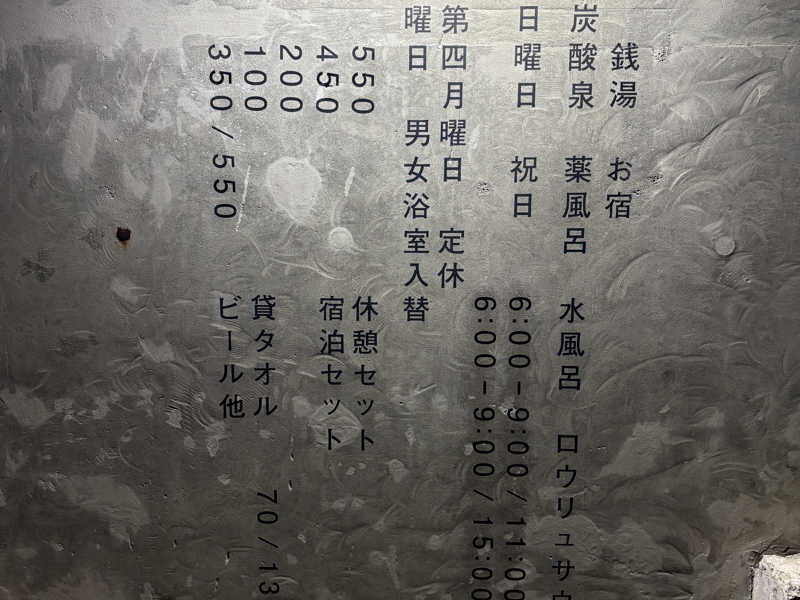 銭湯 お宿
炭酸泉 薬風呂 水風呂 ロウリュサウ
日曜日 祝日 6:00-9:00/11:00
6:00-9:00/15:00
第四月曜日 定休
曜日 男女浴室入替
550 休憩セット
450 宿泊セット
200
100 貸タオル 70/13
350/550 ビール他